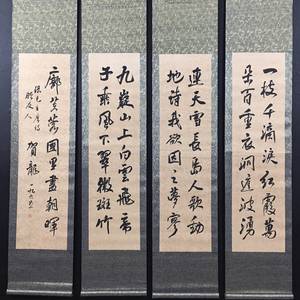 九嶷山上白雲飛帝
子乘風下翠微斑竹
一枝千滴淚紅霞萬
朵百重衣洞庭波湧
連天雪長島人歌動
地詩我欲因之夢寥
廓芙蓉國里盡朝暉
賀龍